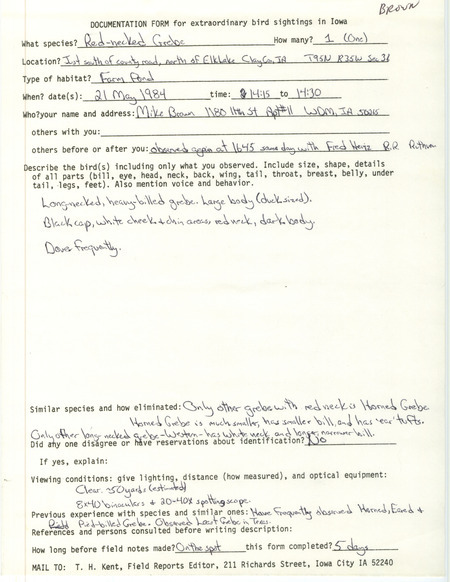 BROWN
DOCUMENTATION FORM for extraordinary bird sightings in Iowa
What species? Red-necked Grebe How many? 1 (One)
Location? Just south of county road, north of Elk Lake Clay Co, IA T95N R35W Sec 36
Type of habitat? Farm Pond
When? date(s): 21 May 1984 time: 14:15 to 14:30
Who?your name and address: Mike Brown 1180 11th St Apt#11 WDM, IA 50265
others with you:
others before or after you: observed again at 1645 same day with Fred Heinz R.R. Ruthven
Describe the bird(s) including only what you observed. Include size, shape, details
of all parts (bill, eye, head, neck, back, wing, tail, throat, breast, belly, under
tail, legs, feet). Also mention voice and behavior.
Long-necked, heavy-billed grebe. Large body (duck sized).
Black cap, white cheek & chin areas, red neck, dark body.
Dove frequently.
Similar species and how eliminated: Only other grebe with red neck is Horned Grebe
Horned Grebe is much smaller, has smaller bill, and has 'ear' tufts.
Only other long-necked grebe - Western - has white neck and longer, narrower bill.
Did any one disagree or have reservations about identification? No
If yes, explain:
Viewing conditions: give lighting, distance (how measured), and optical equipment:
Clear. 50 yards (estimated)
8x40 binoculars & 20-40x spotting scope.
Previous experience with species and similar ones: Have frequently observed Horned, Eared &
Pied-billed Grebe. Observed Least Grebe in Texas.
References and persons consulted before writing description:
How long before field notes made? On the spot this form completed? 5 days
MAIL TO: T. H. Kent, Field Reports Editor, 211 Richards Street, Iowa City IA 52240